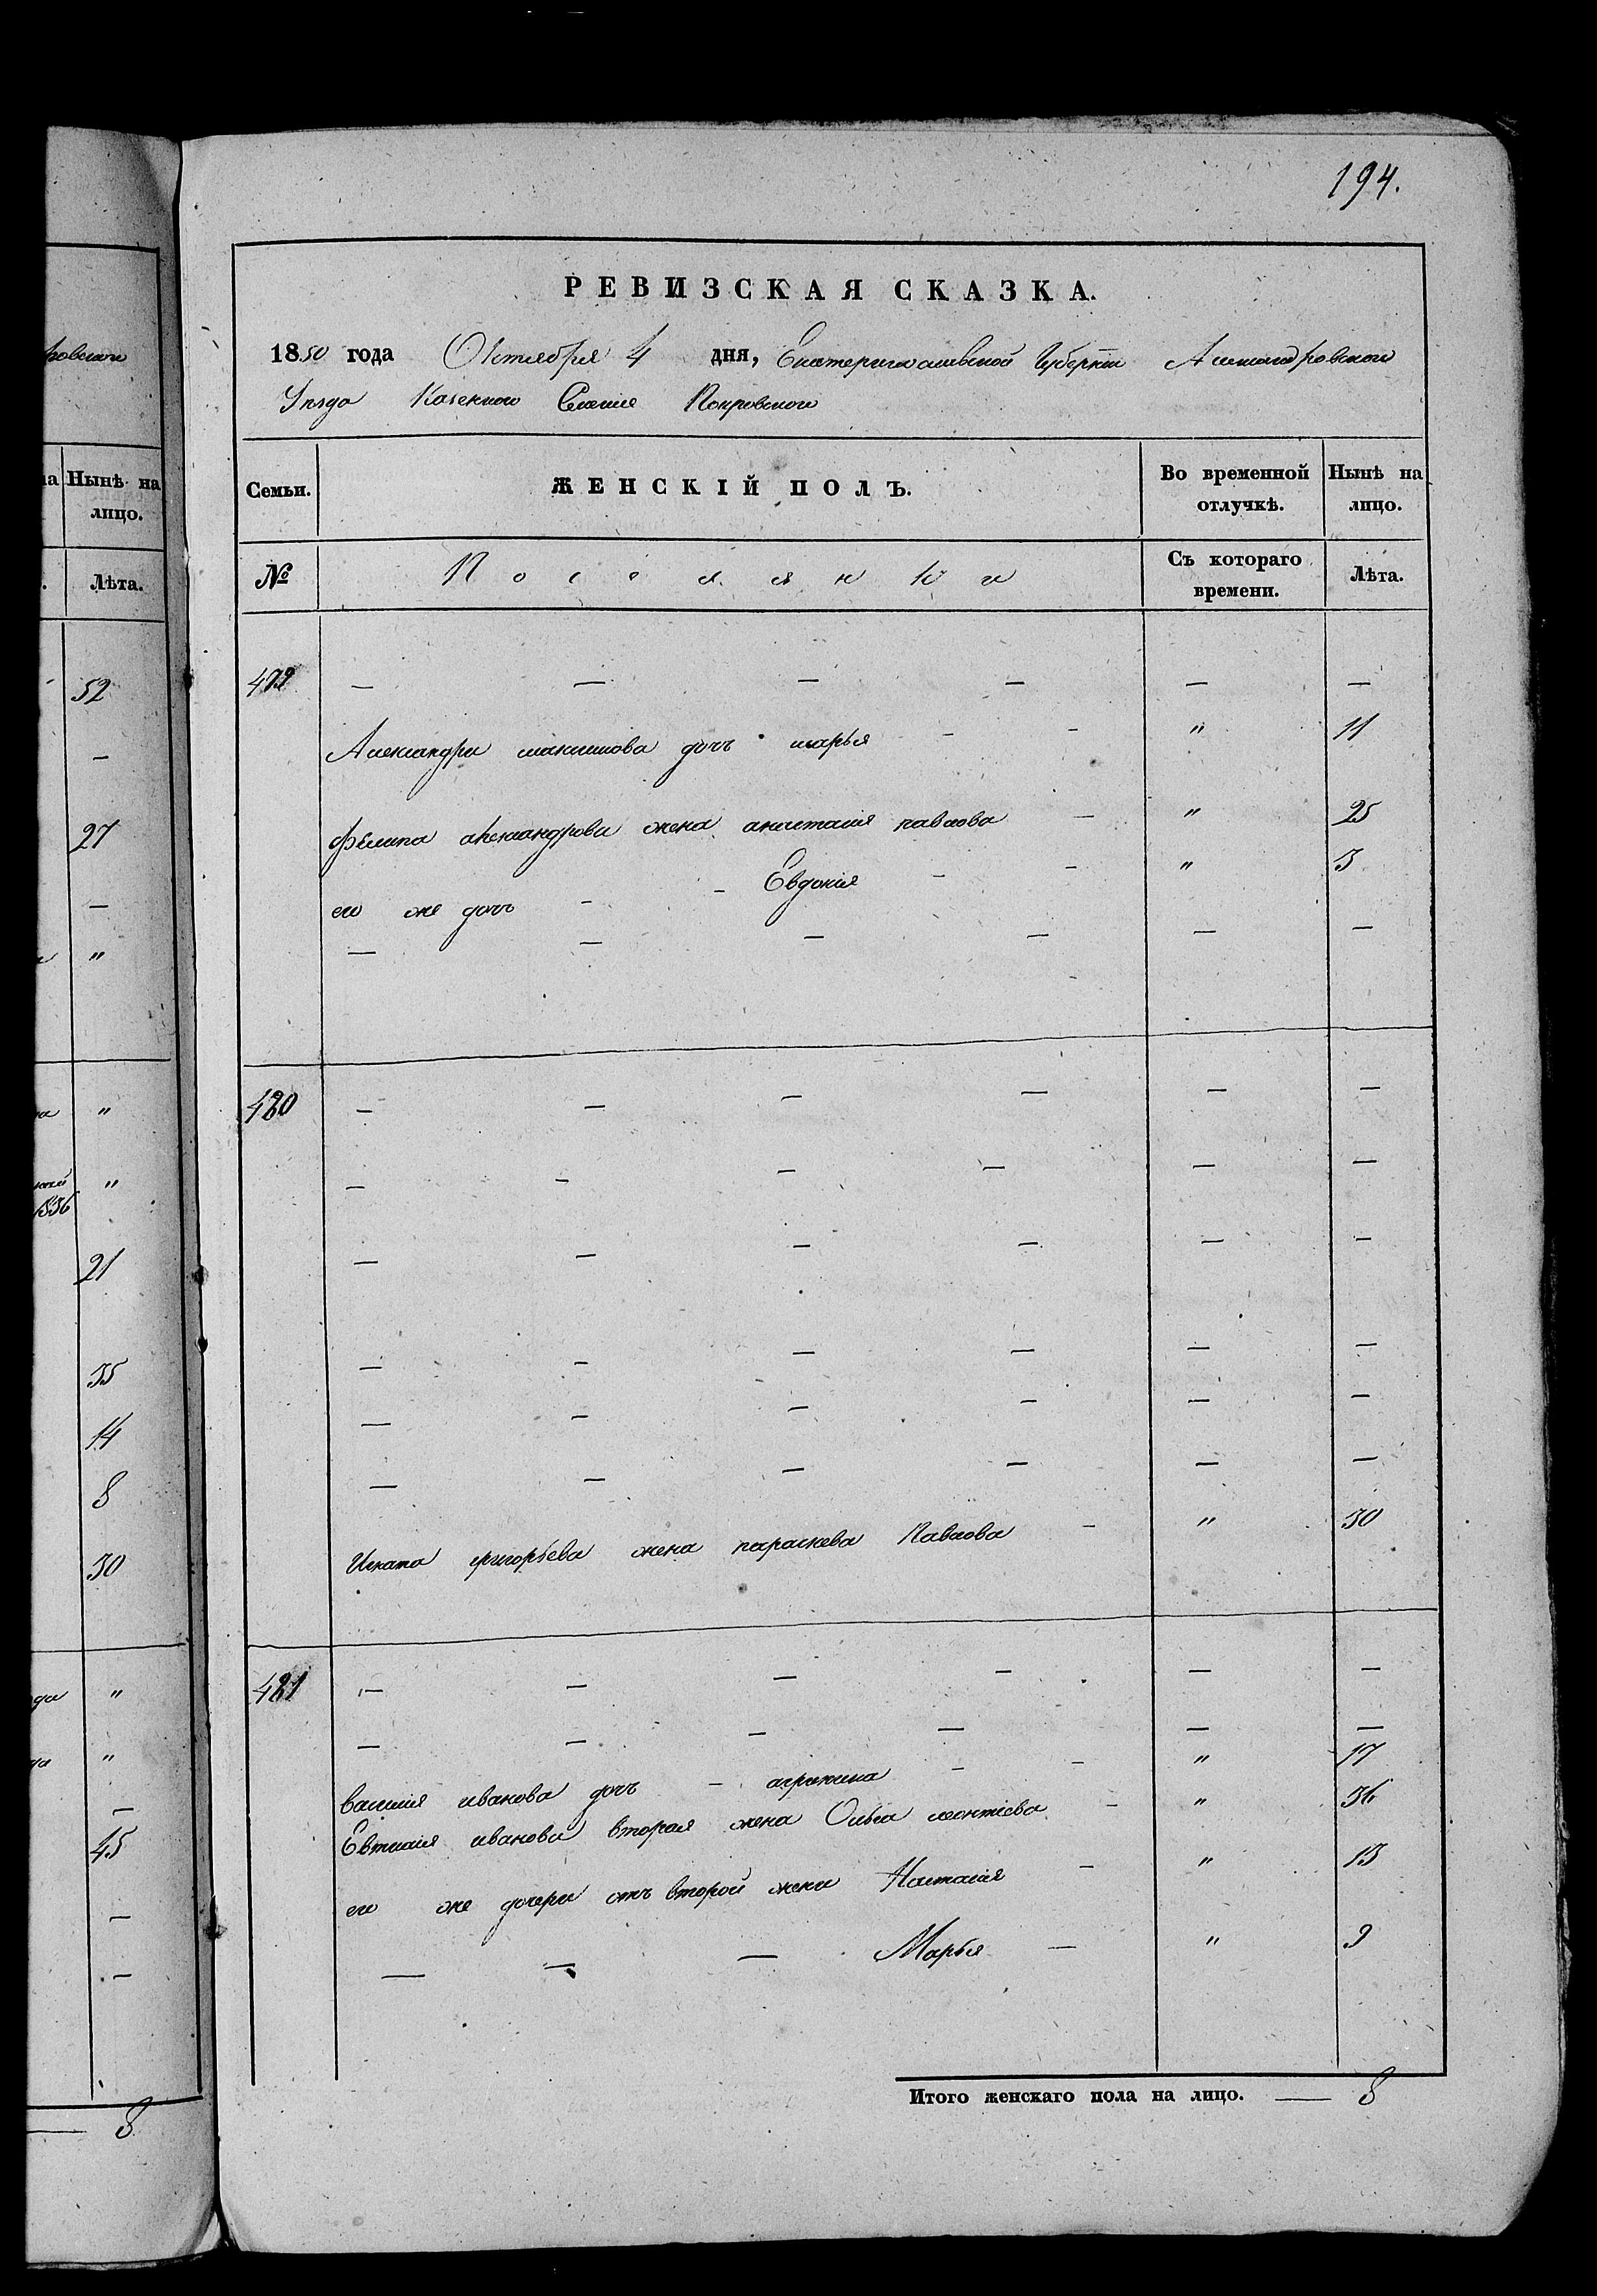 ровского
на Нынѣ на
лицо.
Лѣта.
52
—
27
—
"
"
"
1836
21
35
14
8
30
да "
"
—
45
—
—
— 8
194.
РЕВИЗСКАЯ СКАЗКА.
1850 года Октября 4 дня, Екатеринославской Губернiи Александровского
Уѣзда Казенного Селенiя Покровского
Семьи. ЖЕНСКІЙ ПОЛЪ. Во временной отлучкѣ. Нынѣ на лицо.
№ Поселянки Съ котораго времени. Лѣта.
479 — — — — — —
Александра максимова дочь марья - - " 11
Филипа александрова жена анастасiя павлова - " 25
его же дочь - - Евдокiя - - " 3
— — — — — —
480 — — — — — —
— — — — — —
— — — — — —
— — — — — —
— — — — — —
— — — — — —
Игната григорьева жена параскева Павлова - " 30
481 — — — — — —
— — — — — —
василiя иванова дочь - агрипина - - " 17
Евтихiя иванова вторая жена Ольга леонтiева - " 36
его же дочери отъ второй жени Настасiя - " 13
— — — Марья — " 9
Итого женскаго пола на лицо. — 8